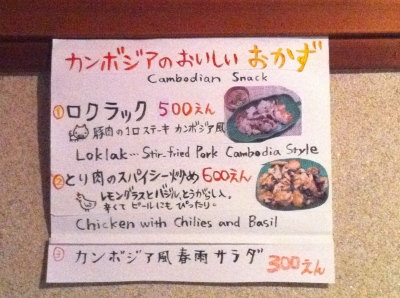 カンボジアのおいしい おかず
Cambodian Snack
① ロクラック 500えん
豚肉の1口ステーキ カンボジア風
Loklak… Stir-fried Pork Cambodia Style
② とり肉のスパイシー炒め 600えん
レモングラスとバジル、とうがらし入。
辛くて ビールにも ぴったり
Chicken with Chilies and Basil
③ カンボジア風 春雨 サラダ 300えん